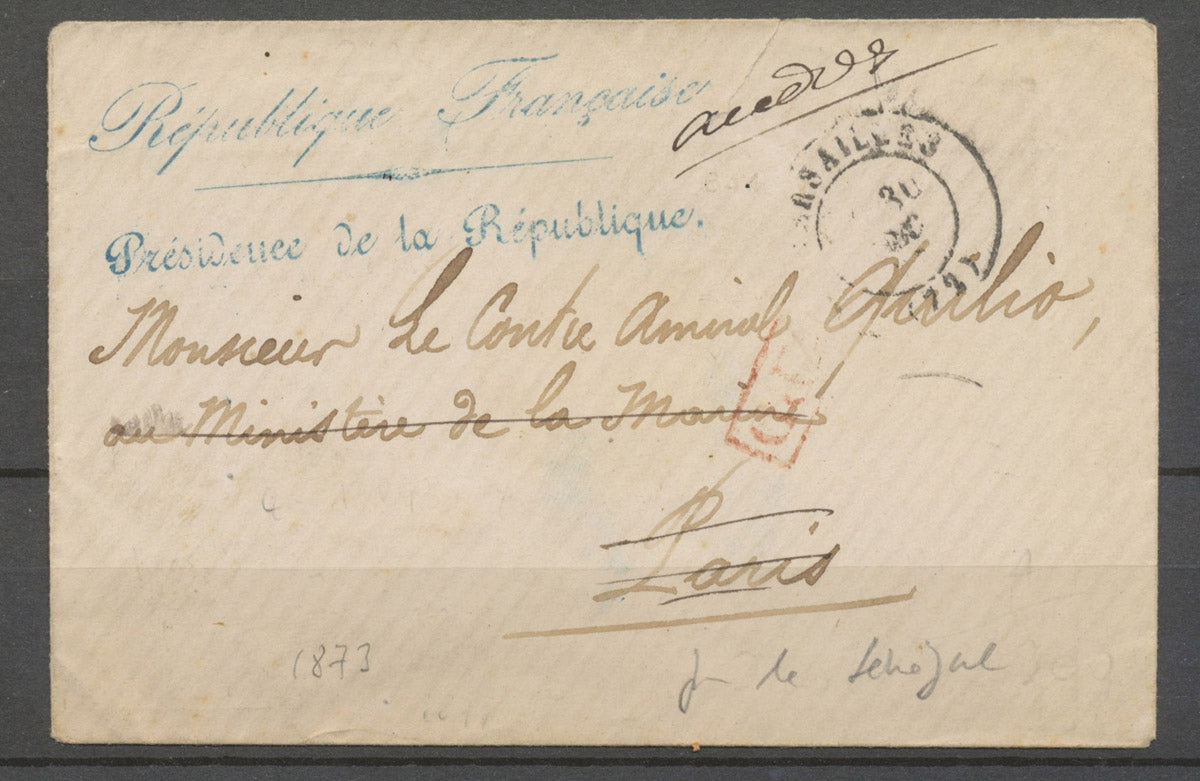 République Française
Présidence de la République.
VERSAILLES
30
Monsieur Le Contre Amiral
au Ministère de la Marine
Paris
1873
le Sénégal